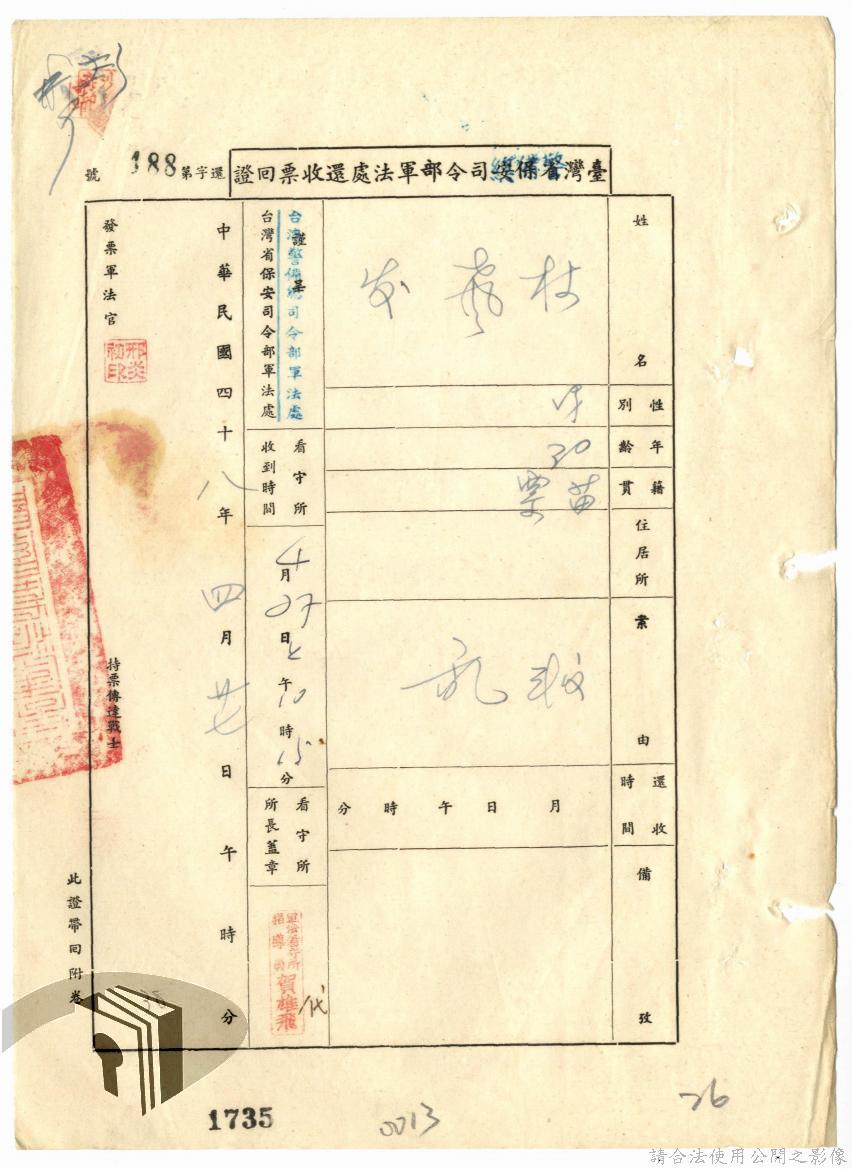 臺灣省保安司令部軍法處還收票回證
警備總
還字第188號
姓名
性別
年齡 30
籍貫 苗栗
住居所
案由 叛亂
還收時間
月 日 午 時 分
備攷
謹呈
台灣警備總司令部軍法處
台灣省保安司令部軍法處
看守所收到時間
4月27日上午10時15分
看守所所長蓋章
軍法看守所
指導員
賀雄飛
代
中華民國四十八年四月廿七日 午 時 分
發票軍法官
持票傳達戰士
此證帶回附卷
1735
0013
26
請合法使用公開之影像